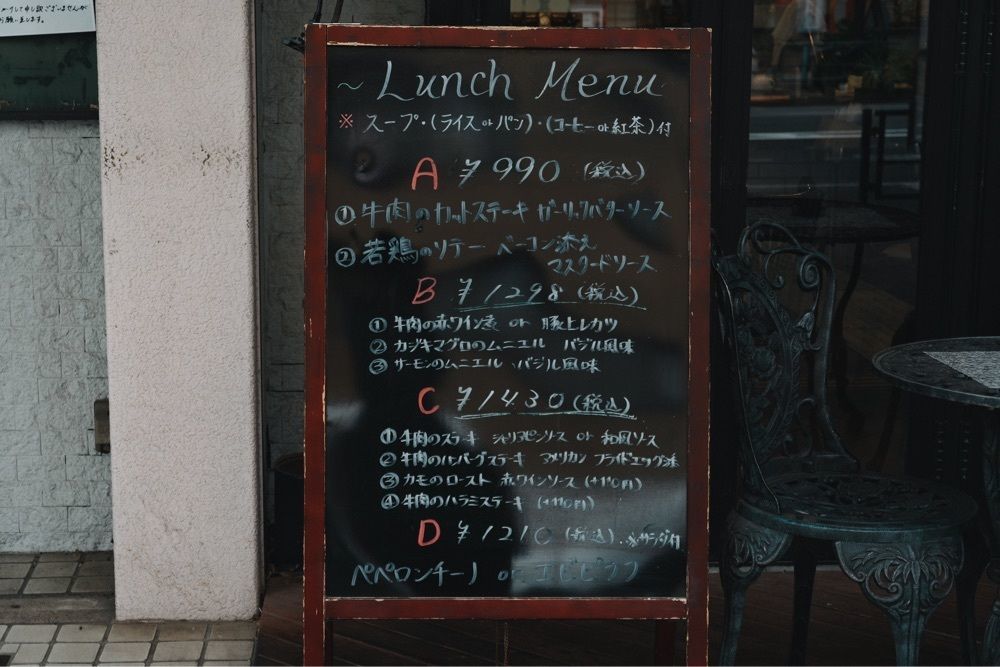 ~ Lunch Menu
※ スープ・(ライス or パン)・(コーヒー or 紅茶)付
A ¥990 (税込)
① 牛肉のカットステーキ ガーリックバターソース
② 若鶏のソテー ベーコン添え
マスタードソース
B ¥1298 (税込)
① 牛肉の赤ワイン煮 or 豚ヒレカツ
② カジキマグロのムニエル バジル風味
③ サーモンのムニエル バジル風味
C ¥1430 (税込)
① 牛肉のステーキ シャリアピンソース or 和風ソース
② 牛肉のハンバーグステーキ アメリカン フライドエッグ添
③ カモのロースト 赤ワインソース (+110円)
④ 牛肉のハラミステーキ (+110円)
D ¥1210 (税込) ※サラダ付
ペペロンチーノ or エビピラフ